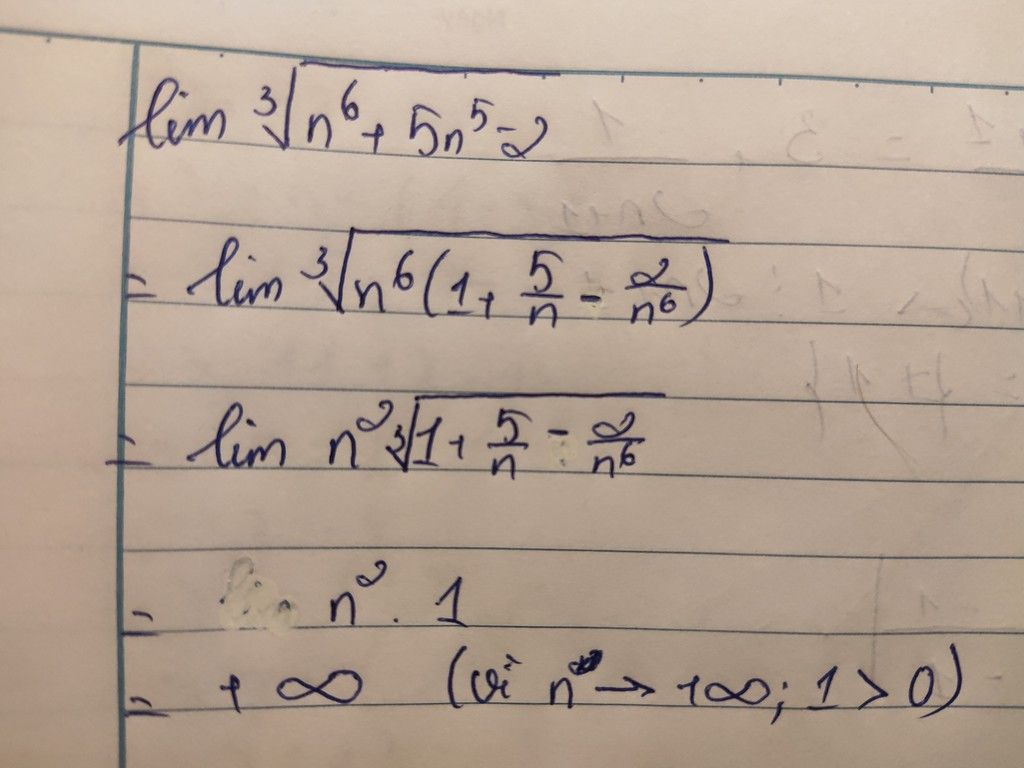 lim ∛(n⁶ + 5n⁵ - 2)
= lim ∛(n⁶(1 + 5/n - 2/n⁶))
= lim n² ∛(1 + 5/n - 2/n⁶)
= n² . 1
= + ∞ (vì n² → +∞; 1 > 0)